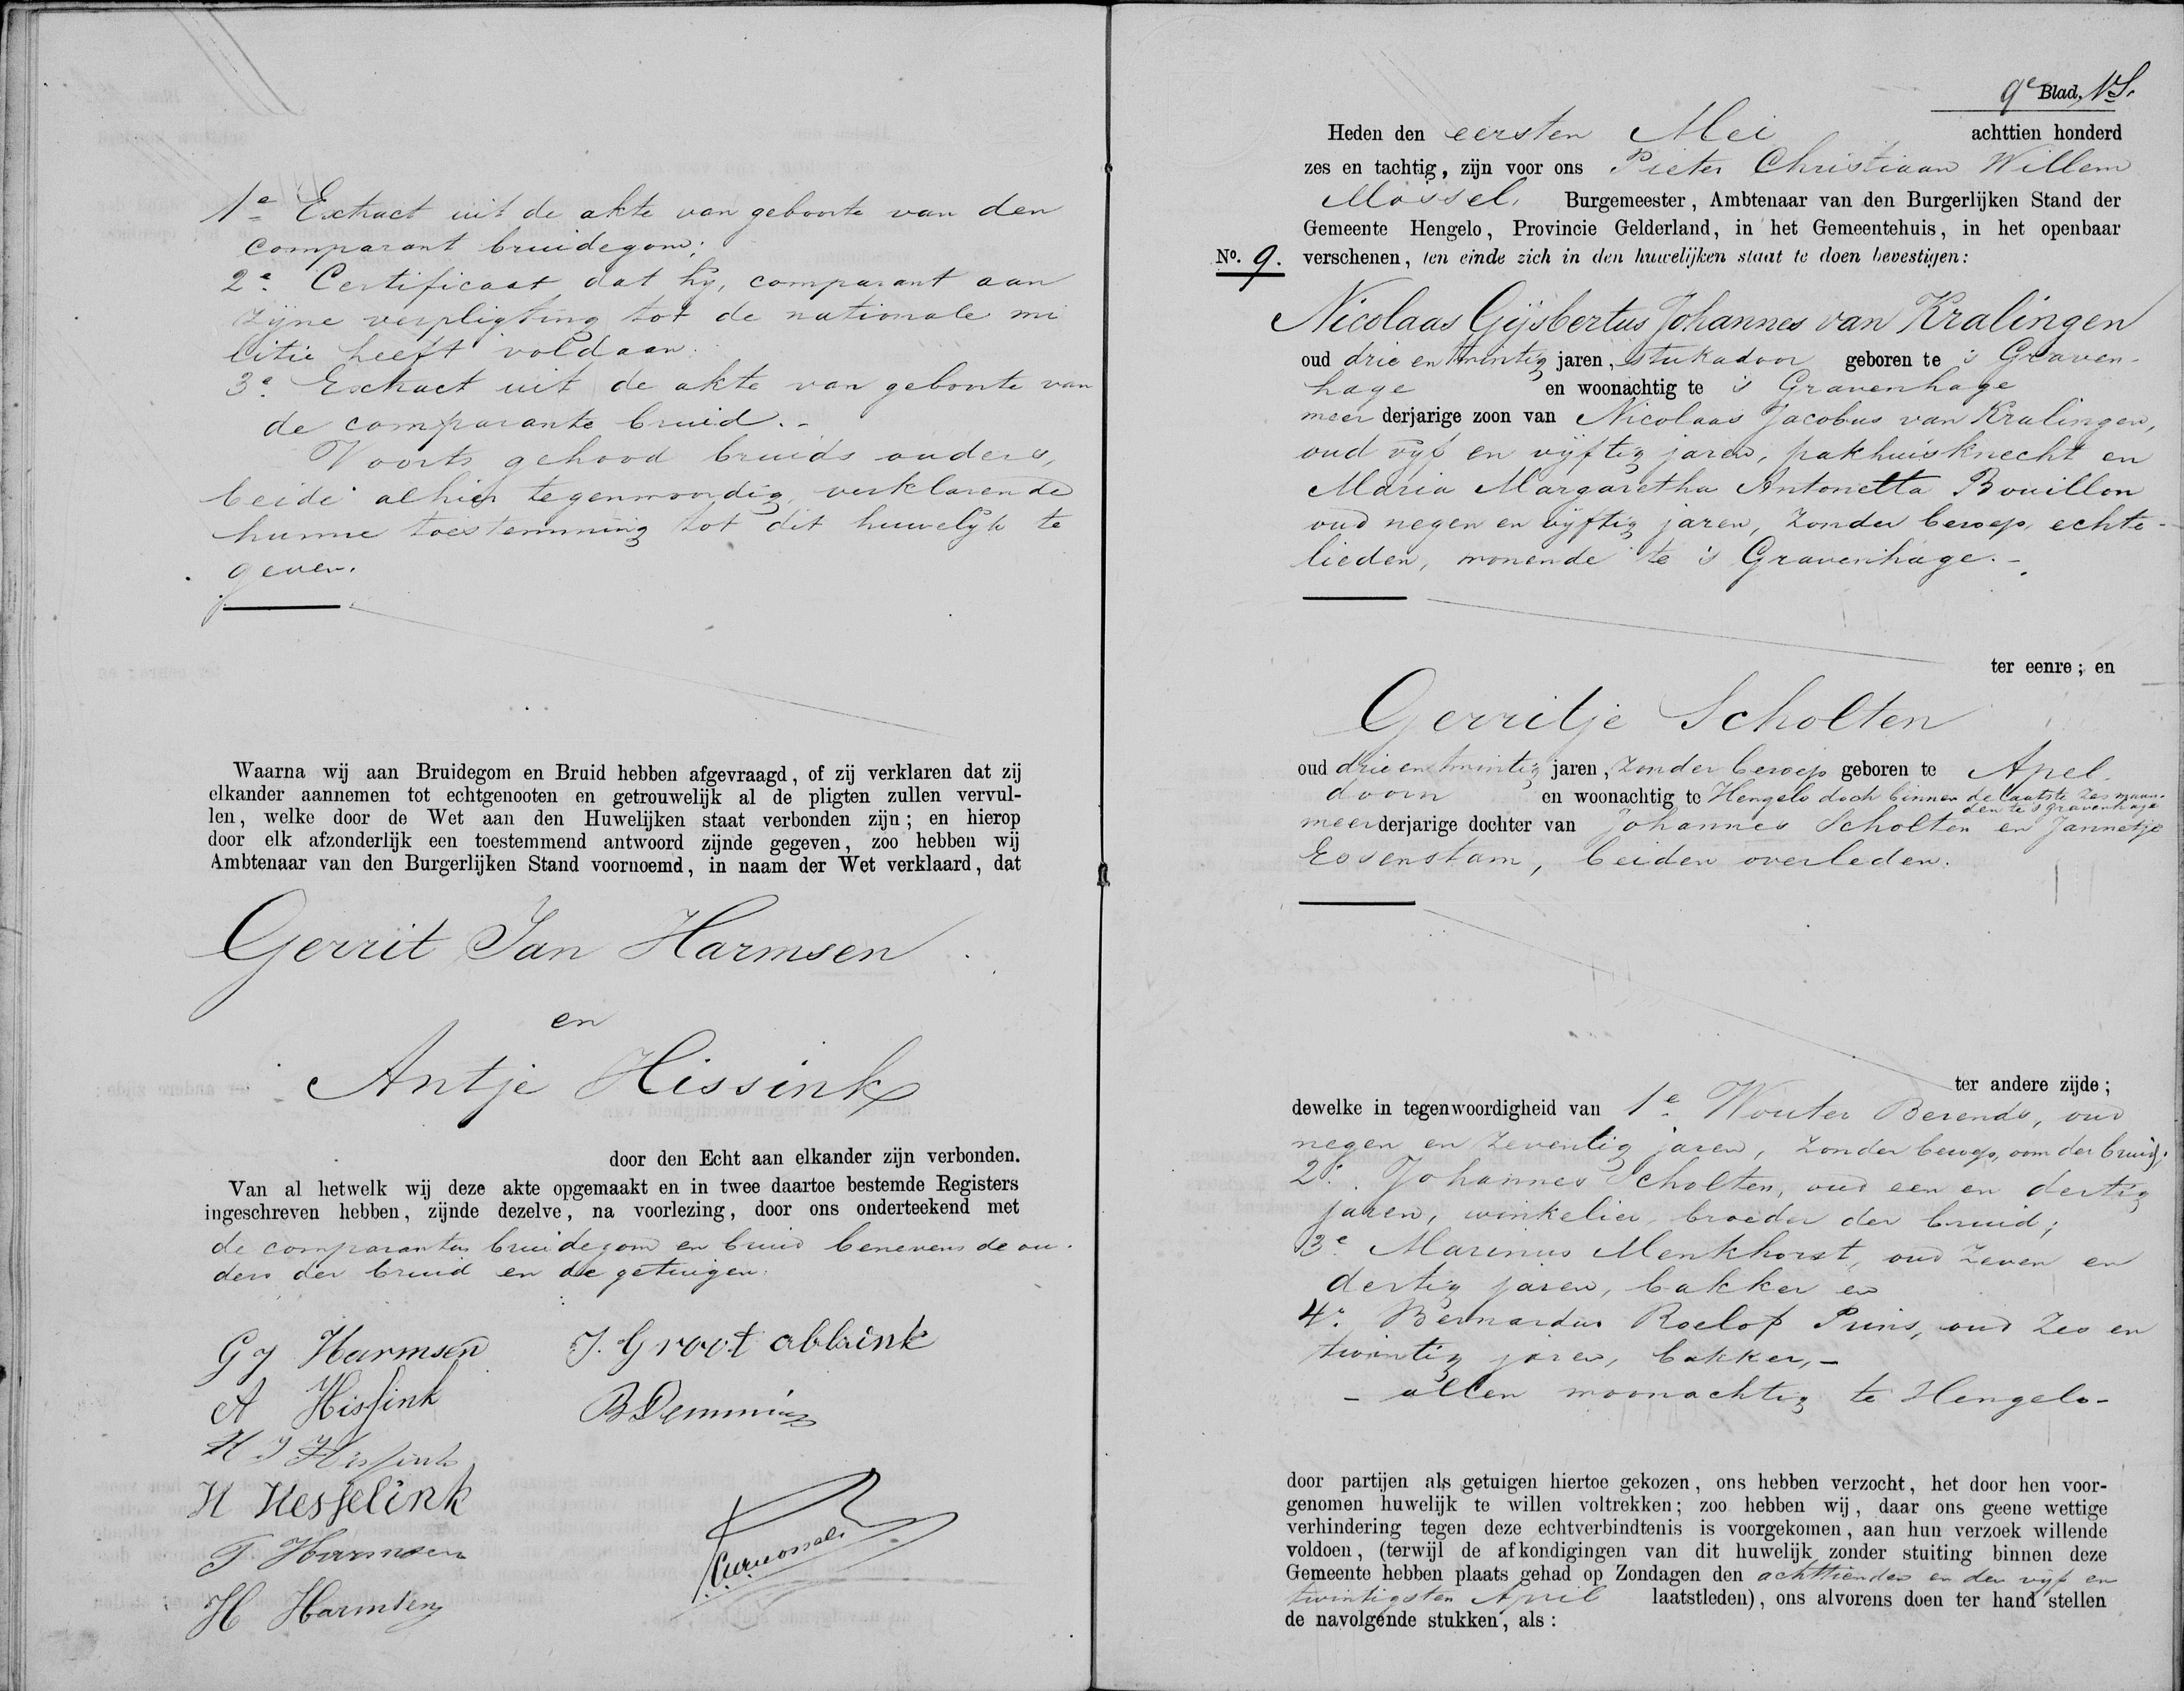 1e Extract uit de akte van geboorte van den
comparant bruidegom;
2e Certificaat dat hij, comparant aan
zijne verpligting tot de nationale mi
litie heeft voldaan.
3e Extract uit de akte van geboorte van
de comparante bruid.-
Voorts gehoord bruids ouders,
beide alhier tegenwoordig, verklarende
hunne toestemming tot dit huwelijk te
geven.
Waarna wij aan Bruidegom en Bruid hebben afgevraagd, of zij verklaren dat zij
elkander aannemen tot echtgenooten en getrouwelijk al de pligten zullen vervul-
len, welke door de Wet aan den Huwelijken staat verbonden zijn; en hierop
door elk afzonderlijk een toestemmend antwoord zijnde gegeven, zoo hebben wij
Ambtenaar van den Burgerlijken Stand voornoemd, in naam der Wet verklaard, dat
Gerrit Jan Harmsen
en
Antje Hissink
door den Echt aan elkander zijn verbonden.
Van al hetwelk wij deze akte opgemaakt en in twee daartoe bestemde Registers
ingeschreven hebben, zijnde dezelve, na voorlezing, door ons onderteekend met
de comparanten bruidegom en bruid benevens de ou-
ders der bruid en de getuigen.
G J Harmsen
J. Groot abbink
A Hissink
B Demming
H J Hissink
H Hesselink
T Harmsen
H Harmsen
9e Blad.
Heden den eersten Mei achttien honderd
zes en tachtig, zijn voor ons Pieter Christiaan Willem
Mossel, Burgemeester, Ambtenaar van den Burgerlijken Stand der
Gemeente Hengelo, Provincie Gelderland, in het Gemeentehuis, in het openbaar
No. 9. verschenen, ten einde zich in den huwelijken staat te doen bevestigen:
Nicolaas Gijsbertus Johannes van Kralingen
oud drie en twintig jaren, stukadoor geboren te 's Graven-
hage en woonachtig te 's Gravenhage
meer derjarige zoon van Nicolaas Jacobus van Kralingen,
oud vijf en vijftig jaren, pakhuisknecht en
Maria Margaretha Antonetta Bouillon
oud negen en vijftig jaren, zonder beroep, echte-
lieden, wonende te 's Gravenhage.-
ter eenre; en
Gerritje Scholten
oud drie en twintig jaren, zonder beroep geboren te Apel-
doorn en woonachtig te Hengelo doch binnen de laatste zes maan-
den te 's gravenhage
meer derjarige dochter van Johannes Scholten en Jannetje
Essenstam, beiden overleden.
ter andere zijde;
dewelke in tegenwoordigheid van 1e Wouter Berends, oud
negen en zeventig jaren, zonder beroep, oom der bruid;
2e. Johannes Scholten, oud een en dertig
jaren, winkelier, broeder der bruid;
3e Marinus Menkhorst, oud zeven en
dertig jaren, bakker en
4e. Bernardus Roelof Prins, oud zes en
twintig jaren, bakker,-
- allen woonachtig te Hengelo-
door partijen als getuigen hiertoe gekozen, ons hebben verzocht, het door hen voor-
genomen huwelijk te willen voltrekken; zoo hebben wij, daar ons geene wettige
verhindering tegen deze echtverbindtenis is voorgekomen, aan hun verzoek willende
voldoen, (terwijl de afkondigingen van dit huwelijk zonder stuiting binnen deze
Gemeente hebben plaats gehad op Zondagen den achttienden en den vijf en
twintigsten April laatstleden), ons alvorens doen ter hand stellen
de navolgende stukken, als: